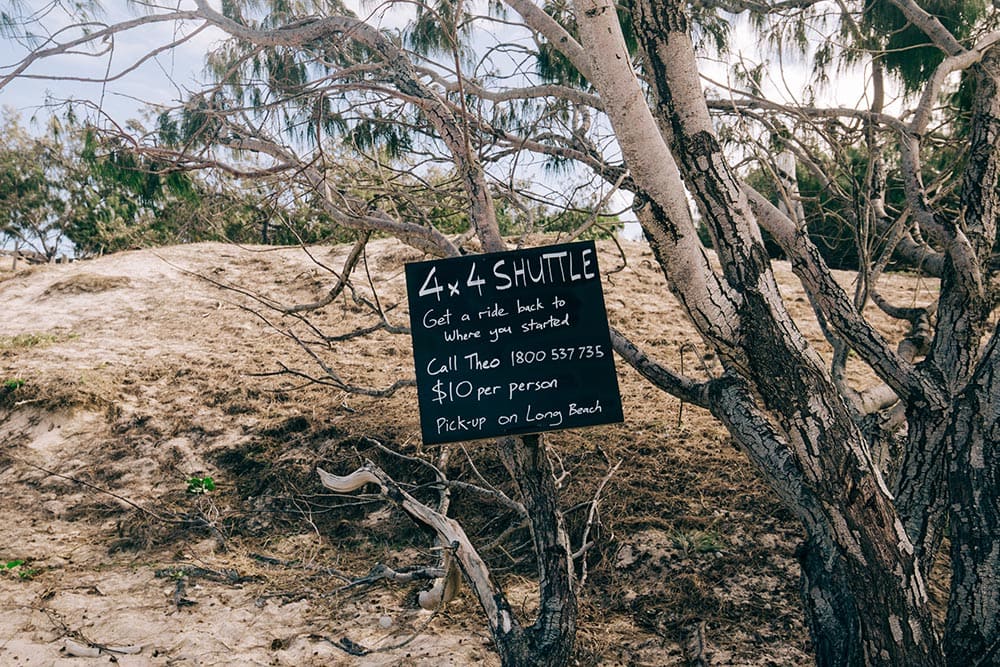 4x4 SHUTTLE
Get a ride back to
where you started
Call Theo 1800 537 735
$10 per person
Pick-up on Long Beach